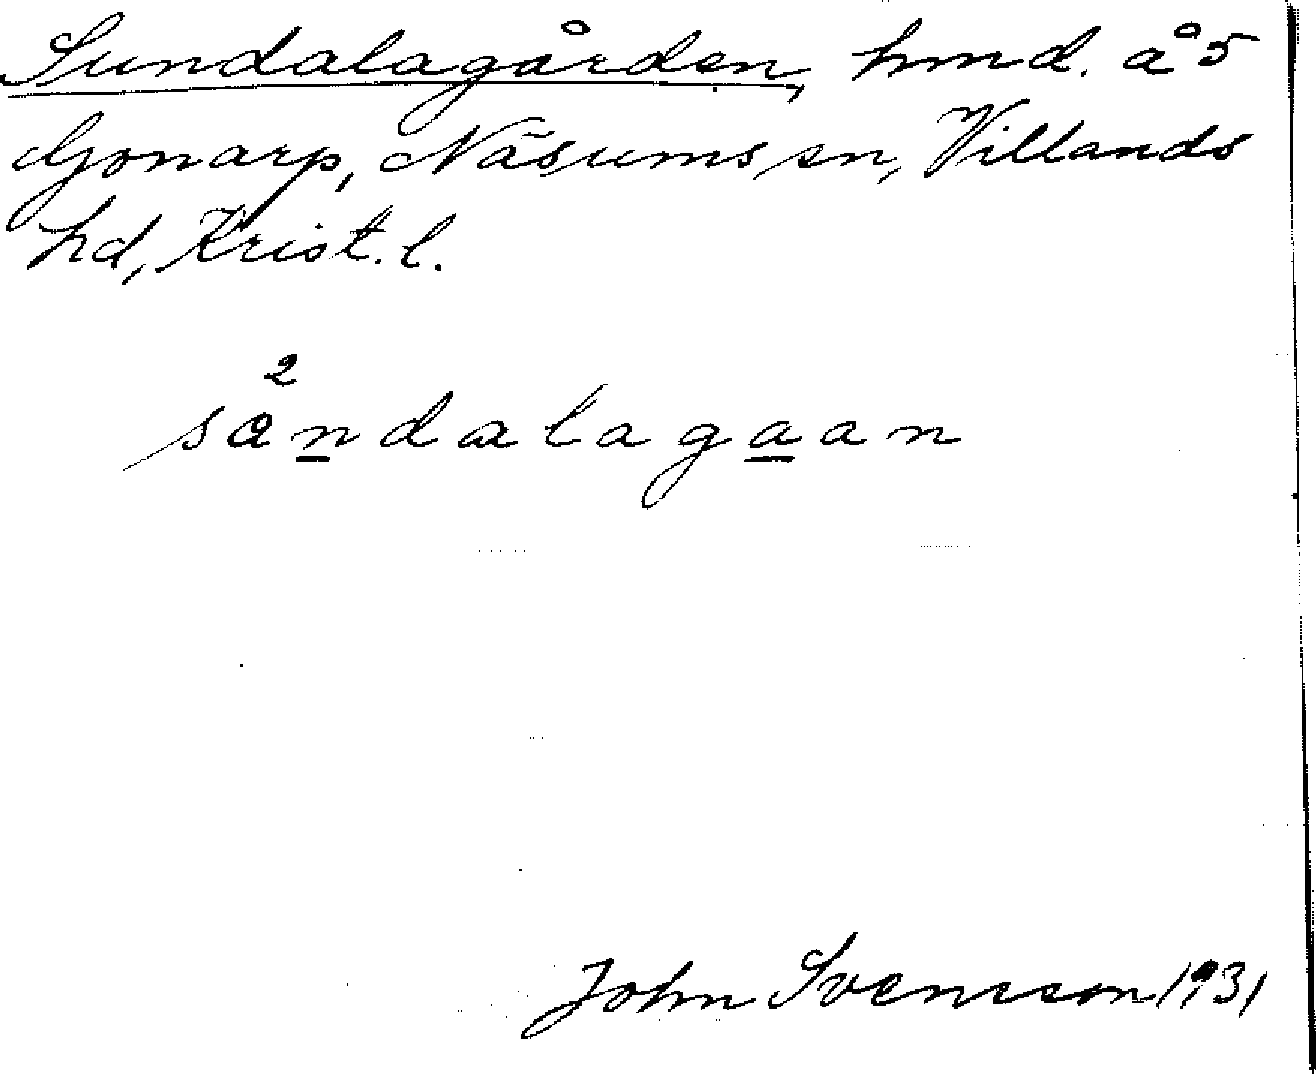 Sundalagården, hmd. å 5
Gonarp, Näsums sn, Villands
hd, Krist. l.
2
såndalagaan
John Svensson 1931